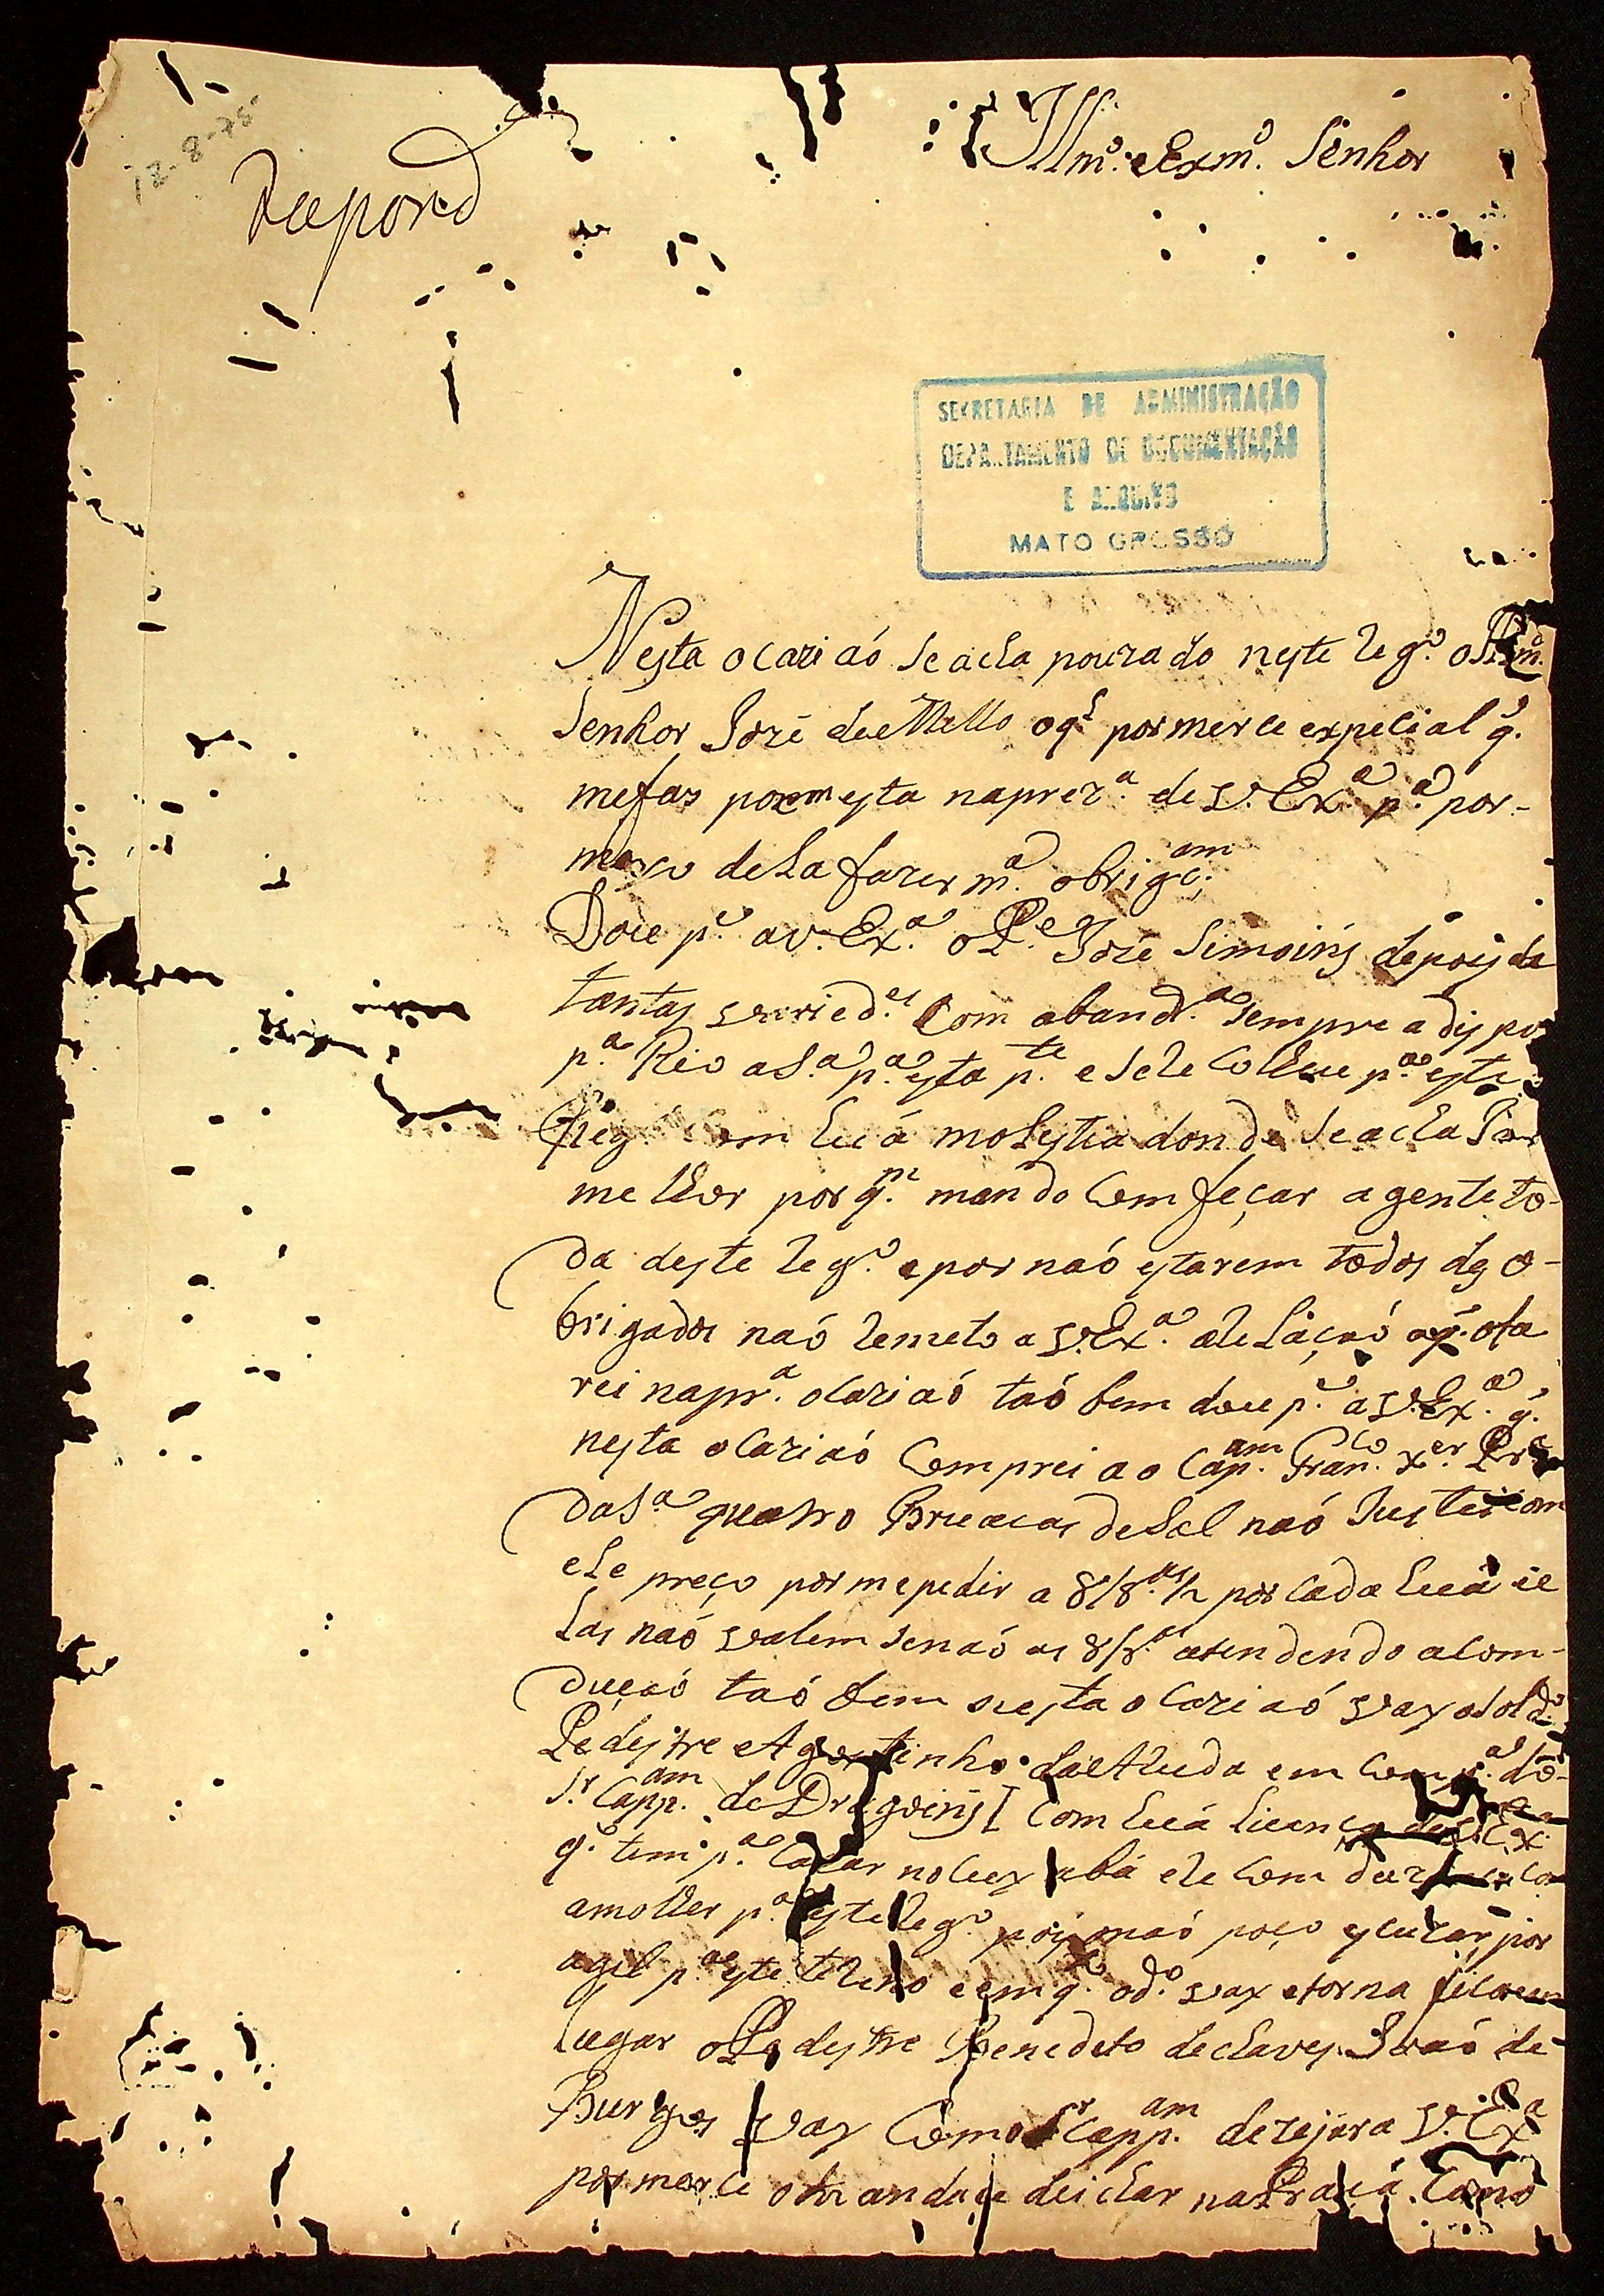 12-8-75
Illmº. e Exmº. Senhor
SECRETARIA DE ADMINISTRAÇÃO
DEPARTAMENTO DE DOCUMENTAÇÃO
E ARQUIVO
MATO GROSSO
Nesta ocaziaó se acha pouzado neste Regº. o
Senhor Joze de Mello oqˡ por merce expecial q̃.
mefas poem esta naprezª. de V. Exª. pª. por-
dela fazer mª. obrigcam;
Dou pᵉ. a V. Exª. o Pᵉ. Joze Simoins depois de
tantas variedᵉˢ. Com abandª. Sempre a dispos
pª. Rio a Sª. pª. esta pᵗᵉ. e Sele Colheu pª. este
Reg com huá molestia donde Se acha Ja
melhor por qᵐ. mando Comfeçar a gente to-
da deste Regº. e por naó estarem todos dezo-
brigados naó Remeto a V. Exª. a Relaçaó o q̃. ofa
rei naprª. ocaziaó taó bem dou pᵉ. a V. Exª. q̃.
nesta ocaziaó Comprei ao Capᵃᵐ. Franᶜᵒ. Xᵉʳ.
da Sª quatro Bruacas de Sal naó Justei com
ele preço por me pedir a 8/8ᵃˢ ½ por cada huá e e
las naó valem Senaó as 8/8ᵃˢ. atendendo a Com-
duçaó taó bem nesta ocaziaó vay o Soldº.
Pedestre Agostinho de Arruda em Compª. do
Sʳ. Cappᵃᵐ. de Dragoins Com huá licença de V. Exª.
q̃. tem pª. Cazar no Cuyabá e le Com
a molher pª. este Regº. pois naó poço escuzar por
agil pª. este e emqᵗᵒ. o dº. vay e torna fica em
lugar o Pedestre Benedito de Chaves. Joaó de
Burgos vay Com o Sʳ Cappᵃᵐ. dezejara V. Exª
por merce o deichar na Praça. Como